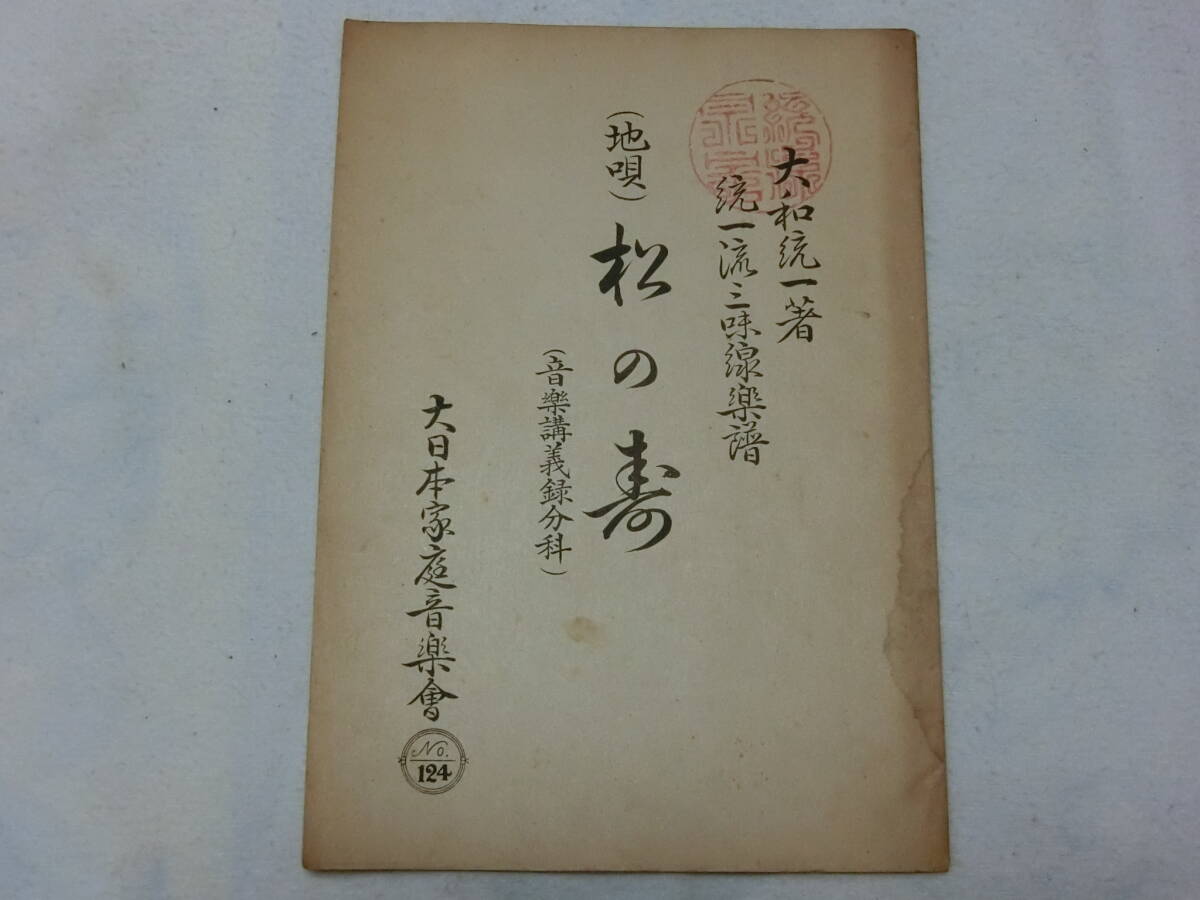 大和統一著
統一流三味線樂譜
(地唄) 松の寿
(音樂講義録分科)
大日本家庭音樂會
No.
124